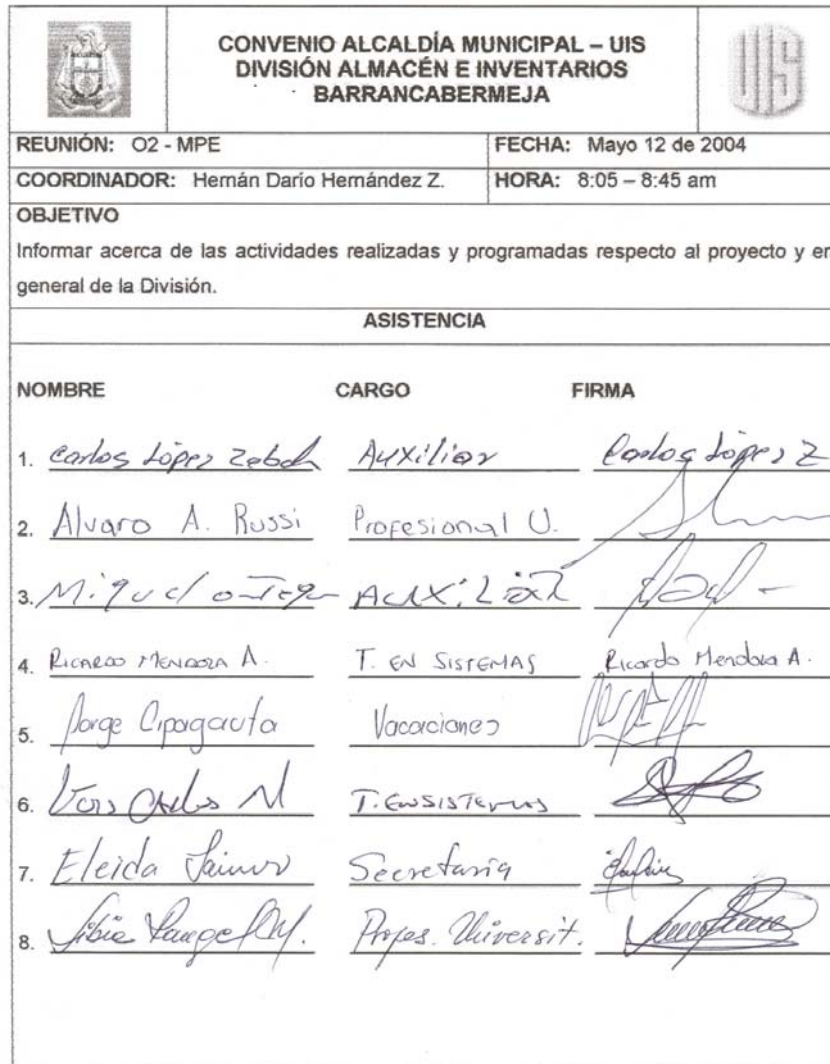 CONVENIO ALCALDÍA MUNICIPAL – UIS
DIVISIÓN ALMACÉN E INVENTARIOS
BARRANCABERMEJA
UIS
REUNIÓN: O2 - MPE FECHA: Mayo 12 de 2004
COORDINADOR: Hernán Darío Hernández Z. HORA: 8:05 – 8:45 am
OBJETIVO
Informar acerca de las actividades realizadas y programadas respecto al proyecto y en
general de la División.
ASISTENCIA
NOMBRE CARGO FIRMA
1. Carlos López Auxiliar Carlos López Z
2. Alvaro A. Russi Profesional U.
3. Miguel Auxiliar
4. RICARDO MENDOZA A. T. EN SISTEMAS Ricardo Mendoza A.
5. Jorge Cipagauta Vacaciones
6. T. EN SISTEMAS
7. Eleida Secretaria
8. Rangel M. Profes. Universit.